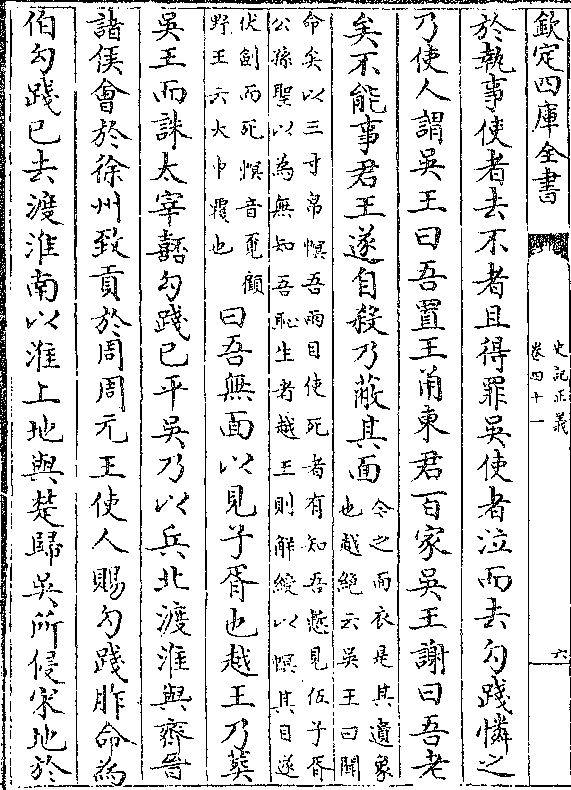 欽定四庫全書
史記正義
卷四十一
六
於執事使者去不者且得罪吳使者泣而去勾踐憐之
乃使人謂吳王曰吾置王甬東君百家吳王謝曰吾老
矣不能事君王遂自殺乃蔽其面
今之面衣是其遺象
也越絕云吳王曰聞
命矣以三寸帛幎吾兩目使死者有知吾慙見伍子胥
公孫聖以為無知吾恥生者越王則解綬以幎其目遂
伏劍而死幎音覓顧
野王云大巾覆也
曰吾無面以見子胥也越王乃葬
吳王而誅太宰嚭勾踐已平吳乃以兵北渡淮與齊晉
諸侯會於徐州致貢於周周元王使人賜勾踐胙命為
伯勾踐已去渡淮南以淮上地與楚歸吳所侵宋地於